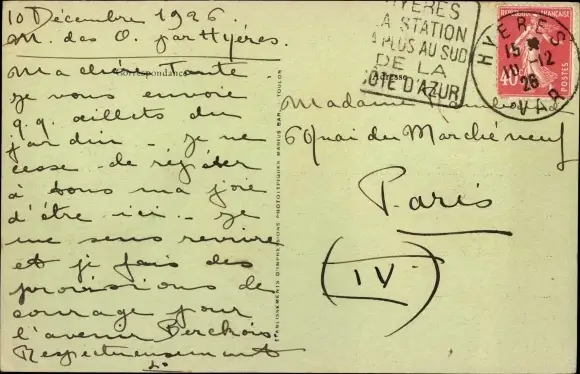 10 Décembre 1926.
M. des O. par Hyères.
Correspondance
Ma chère Tante
je vous envoie
q.q. œillets du
jardin - je ne
cesse de répéter
à tous ma joie
d'être ici - je
me sens revivre
et je fais des
provisions de
courage pour
l'avenir
Respectueusement
ÉTABLISSEMENTS D'IMPRESSIONS PHOTOTYPIQUES MARIUS BAR, TOULON
HYÈRES
LA STATION
LA PLUS AU SUD
DE LA
CÔTE D'AZUR
HYERES
15
10-12
26
VAR
RÉPUBLIQUE FRANÇAISE
40
Adresse
Madame
6 Quai du Marché neuf
Paris
(IV)